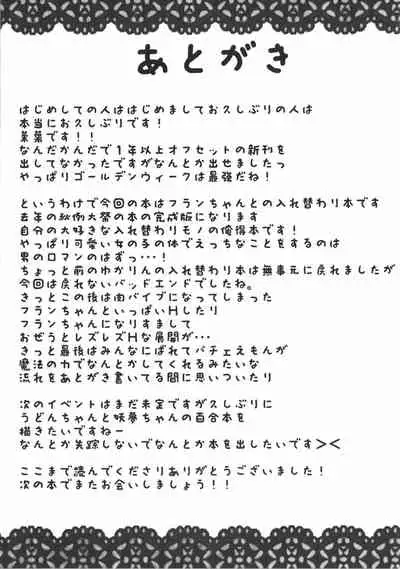 あとがき
はじめしての人ははじめましてお久しぶりの人は
本当にお久しぶりです！
菓葉です！！
なんだかんだで１年以上オフセットの新刊を
出してなかったですがなんとか出せましたっ
やっぱりゴールデンウィークは最強だね！
というわけで今回の本はフランちゃんとの入れ替わり本です
去年の秋例大祭の本の完成版になります
自分の大好きな入れ替わりモノの俺得本です！
やっぱり可愛い女の子の体でえっちなことをするのは
男のロマンのはずっ・・・！
ちょっと前のゆかりんの入れ替わり本は無事元に戻れましたが
今回は戻れないバッドエンドでしたね。
きっとこの後は肉バイブになってしまった
フランちゃんといっぱいHしたり
フランちゃんになりすまして
おぜうとレズレズHな展開が・・・
きっと最後はみんなにばれてパチェえもんが
魔法の力でなんとかしてくれるみたいな
流れをあとがき書いてる間に思いついたり
次のイベントはまだ未定ですが久しぶりに
うどんちゃんと妖夢ちゃんの百合本を
描きたいですねー
なんとか失踪しないでなんとか本を出したいです＞＜
ここまで読んでくださりありがとうございました！
次の本でまたお会いしましょう！！